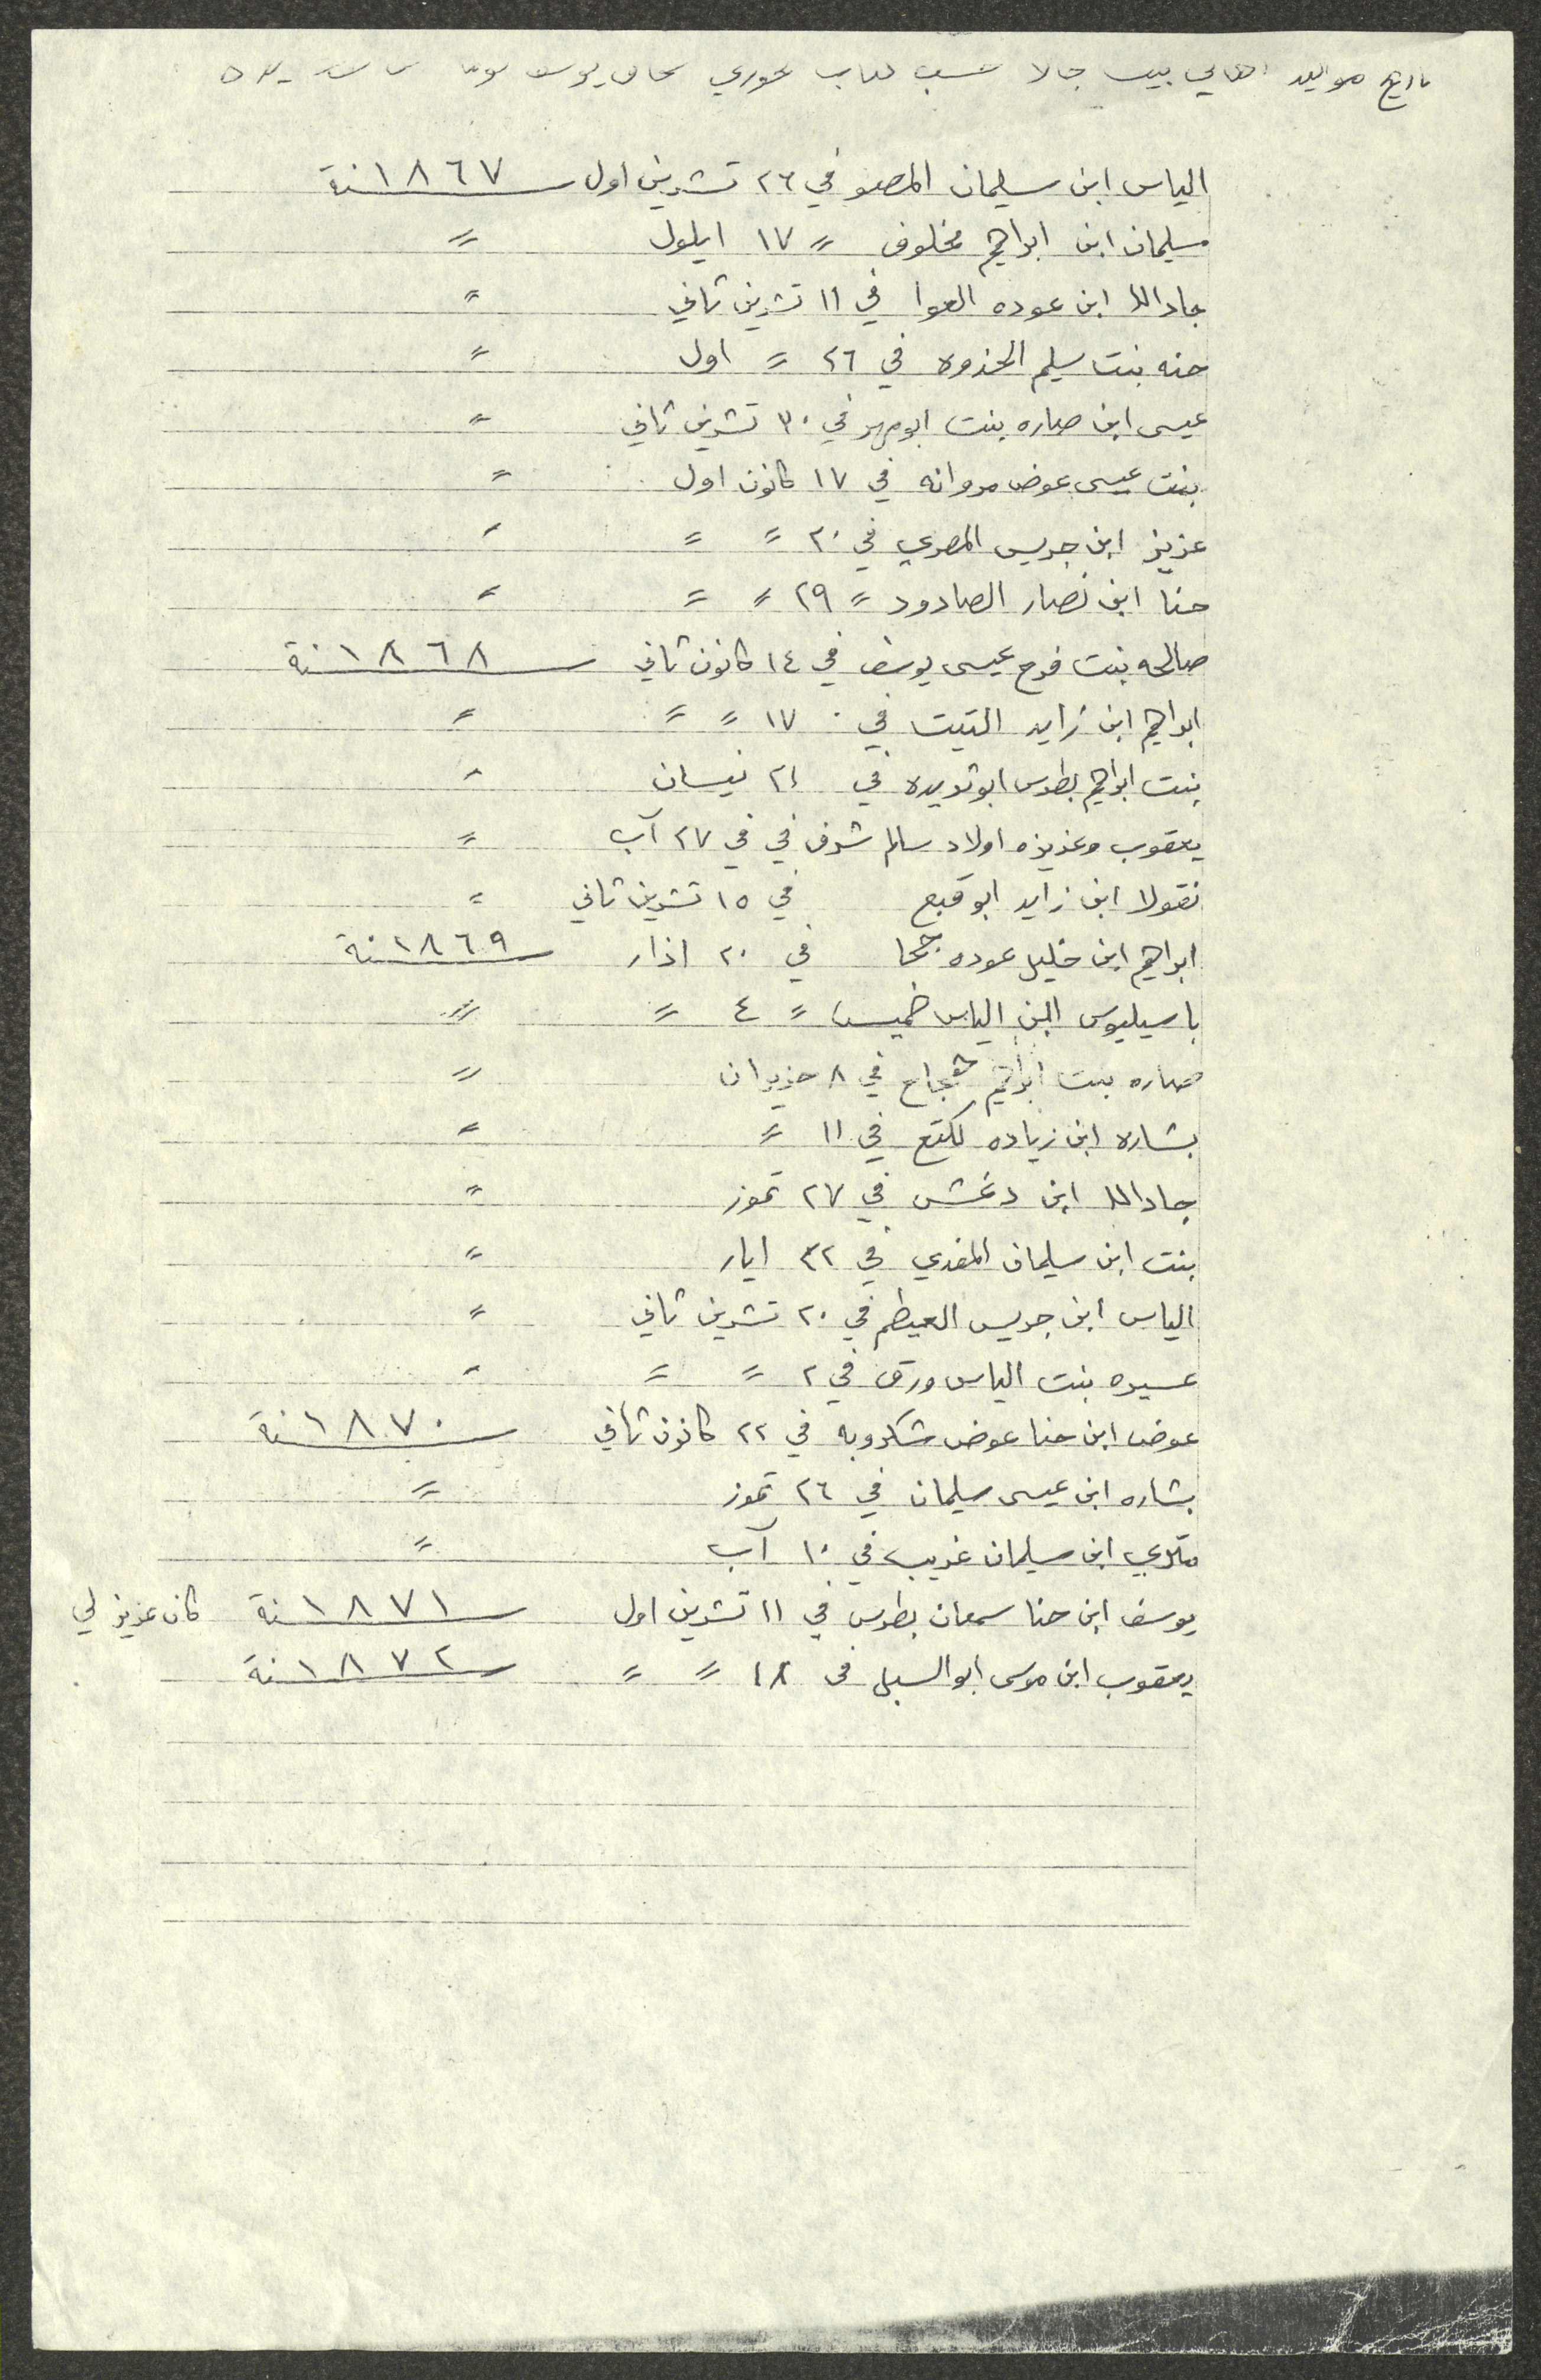 تاريخ مواليد اهالي بيت جالا حسب كتاب الخوري يوسف
الياس ابن سليمان المصو في ٢٦ تشرين اول سنة ١٨٦٧
سليمان ابن ابراهيم مخلوف " ١٧ ايلول "
جادالله ابن عوده العوا في ١١ تشرين ثاني "
حنه بنت سليم الحذوه في ٢٦ " اول "
عيسى ابن صاره بنت ابو مهر في ٣٠ تشرين ثاني "
بنت عيسى عوض مروانه في ١٧ كانون اول "
عزيز ابن جريس المصري في ٢٠ " " "
حنا ابن نصار الصادود " ٢٩ " " "
صالحه بنت فرح عيسى يوسف في ١٤ كانون ثاني سنة ١٨٦٨
ابراهيم ابن زايد التيت في ١٧ " " "
بنت ابراهيم بطرس ابو ثديره في ٢١ نيسان "
يعقوب وعزيزه اولاد سالم شرف في في ٢٧ آب "
نقولا ابن زايد ابو قبع في ١٥ تشرين ثاني "
ابراهيم ابن خليل عوده جحا في ٢٠ اذار سنة ١٨٦٩
باسيليوس ابن الياس خميس " ٤ " "
صاره بنت ابراهيم حجاج في ٨ حزيران "
بشاره ابن زياده لكتع في ١١ " "
جادالله ابن دغش في ٢٧ تموز "
بنت ابن سليمان المغدي في ٢٢ ايار "
الياس ابن جريس العيظم في ٢٠ تشرين ثاني "
عسيره بنت الياس ورق في ٢ " " "
عوض ابن حنا عوض شكروبه في ٢٢ كانون ثاني سنة ١٨٧٠
بشاره ابن عيسى سليمان في ٢٦ تموز "
متري ابن سليمان غريب في ١٠ آب "
يوسف ابن حنا سمعان بطرس في ١١ تشرين اول سنة ١٨٧١ كان عزيز لي
يعقوب ابن موسى ابو السبل في ١٨ " " سنة ١٨٧٢